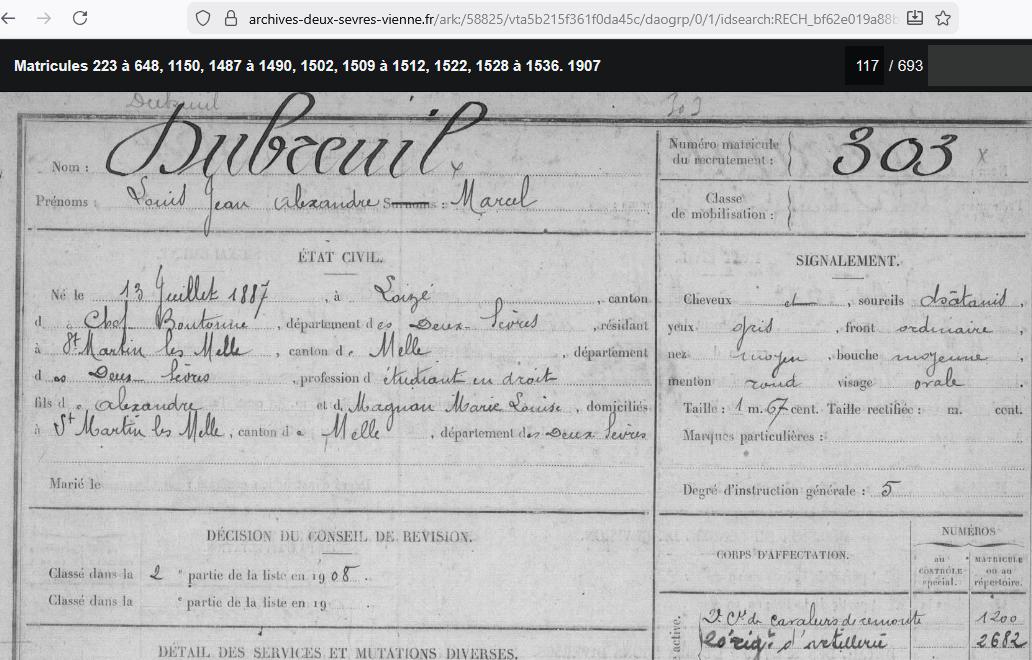 archives-deux-sevres-vienne.fr/ark:/58825/vta5b215f361f0da45c/daogrp/0/1/idsearch:RECH_bf62e019a88b
Matricules 223 à 648, 1150, 1487 à 1490, 1502, 1509 à 1512, 1522, 1528 à 1536. 1907
117 / 693
Dubreuil 303
Nom : Dubreuil x
Numéro matricule du recrutement : 303 x
Prénoms : Louis Jean Alexandre Surnoms : Marcel
Classe de mobilisation :
ÉTAT CIVIL.
Né le 13 Juillet 1887, à Loizé, canton
d e Chef Boutonne, département des Deux Sèvres, résidant
à St Martin les Melle, canton de Melle, département
d es Deux Sèvres, profession d' étudiant en droit
fils de Alexandre et de Magnan Marie Louise, domiciliés
à St Martin les Melle, canton de Melle, département des Deux Sèvres
Marié le
SIGNALEMENT.
Cheveux et, sourcils châtains,
yeux gris, front ordinaire
nez moyen, bouche moyenne,
menton rond visage ovale.
Taille : 1 m. 67 cent. Taille rectifiée : m. cent.
Marques particulières :
Degré d'instruction générale : 5
DÉCISION DU CONSEIL DE REVISION.
Classé dans la 2 e partie de la liste en 1908.
Classé dans la e partie de la liste en 19
CORPS D'AFFECTATION.
NUMÉROS
au CONTRÔLE spécial.
MATRICULE ou au répertoire.
active.
Cie de cavaliers de remonte 1200
20e rég. d'artillerie 2682
DÉTAIL DES SERVICES ET MUTATIONS DIVERSES.